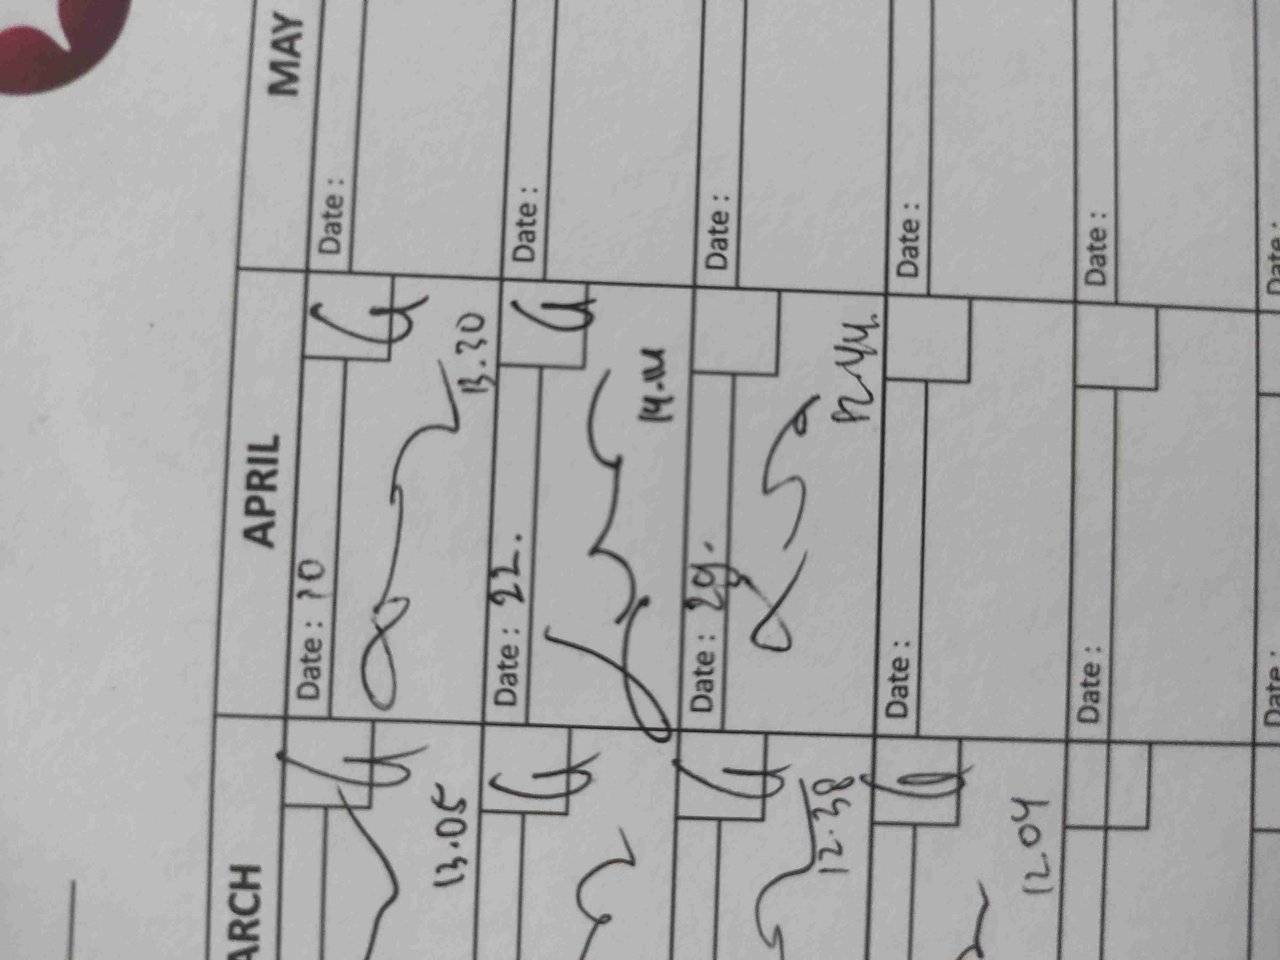 ARCH
APRIL
MAY
Date : 10
Date :
13.05
13.30
Date : 22.
Date :
14.14
Date : 29.
Date :
12.38
12.44.
Date :
Date :
12.04
Date :
Date :
Date :
Date :